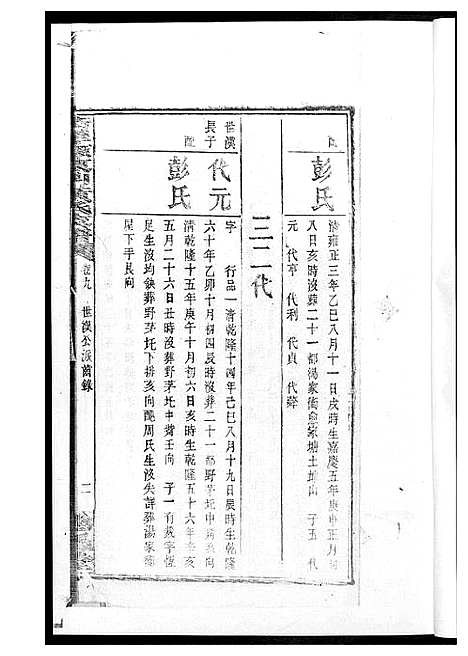 配
彭氏
清雍正三年乙巳八月十一日戌時生嘉慶五年庚申正月初
八日亥時沒葬二十一都湯家衝俞家塘土坤山 子五 代
元 代亨 代利 代貞 代
三二代
世漢
長子
代元
字 行品一清乾隆十四年己巳八月十九日戾時生乾隆
六十年乙卯十月初四辰時沒葬二十一都野茅圫申
配
彭氏
清乾隆十五年庚午十月初六日亥時生乾隆五十六年辛亥
五月二十六日丑時沒葬野茅圫中嘴壬向 子一有
足生沒均缺葬野茅圫下排亥向配周氏生沒失詳葬湯家衝
屋下手艮向
卷九 世漢公派齒錄
二